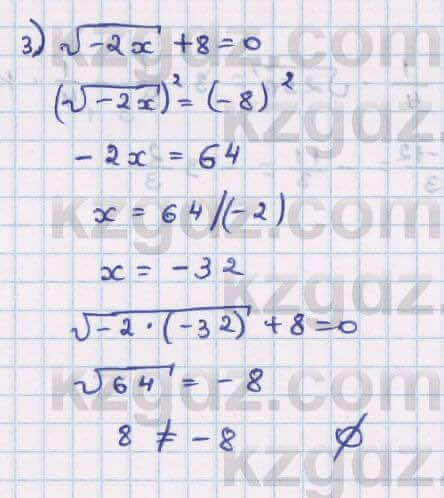 3) √-2x + 8 = 0
(√-2x)² = (-8)²
-2x = 64
x = 64/(-2)
x = -32
√-2·(-32) + 8 = 0
√64 = -8
8 ≠ -8 ∅
kzgdz.com
kzgdz.com
kzgdz.com
kzgdz.com
kzgdz.com
kzgdz.com